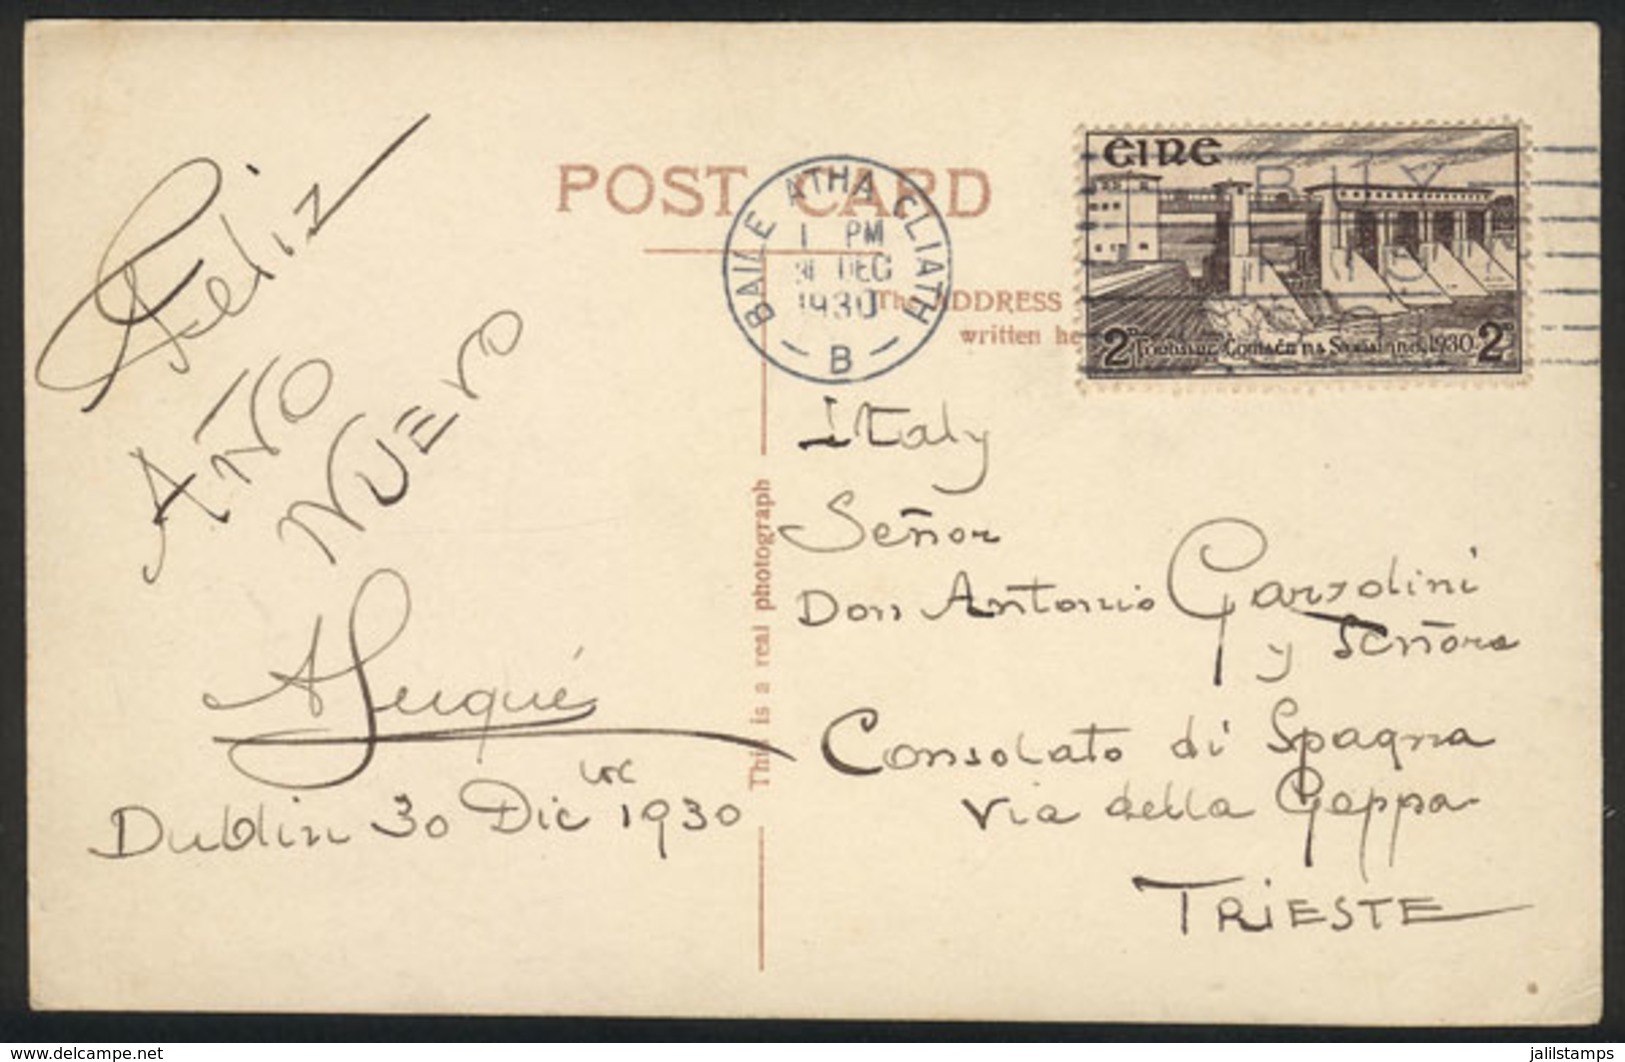 Feliz
AÑO
NUEVO
A Luqué
Dublin 30 Dic bre 1930
POST CARD
The ADDRESS
written he
This is a real photograph
BAILE ATHA CLIATH
1 PM
31 DEC
1930
B
EIRE
2D
1930
2D
Italy
Señor
Don Antonio Garzolini
y Señora
Consolato di Spagna
Via della Geppa
TRIESTE
www.delcampe.net
jalilstamps